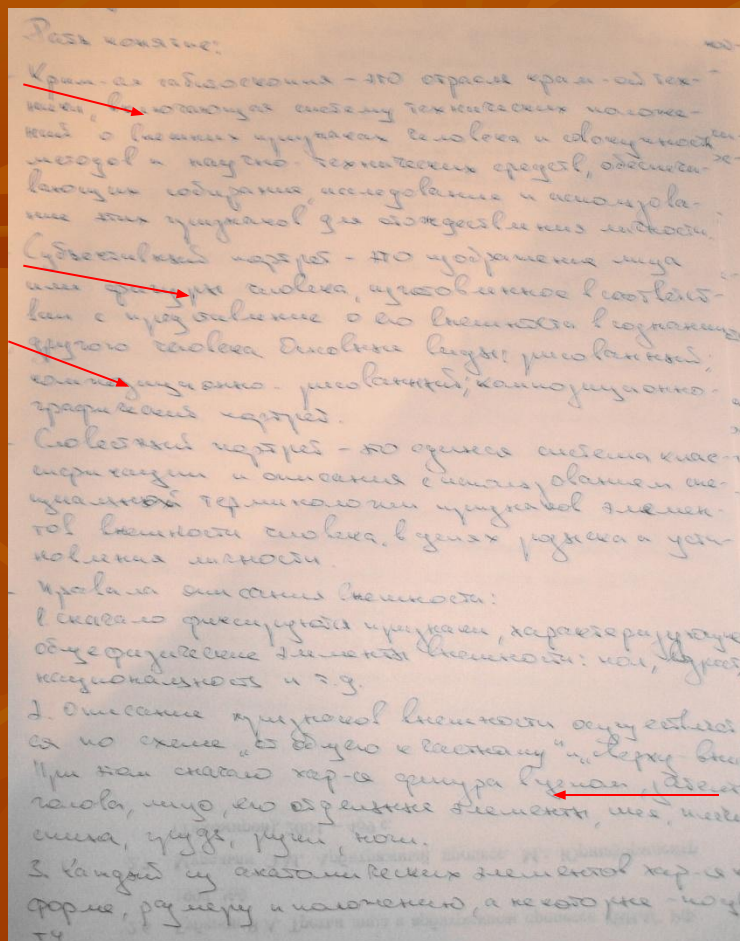 Дать понятие:
Крим-ая габитоскопия – это отрасль крим-ой тех-
ники, включающая систему технических положе-
ний о внешних признаках человека и совокупность
методов и научно-технических средств, обеспечи-
вающих собирание, исследование и использова-
ние этих признаков для отождествления личности.
Субъективный портрет – это изображение лица
или фигуры человека, изготовленное в соответст-
вии с представление о его внешности в сознании
другого человека Основные виды: рисованный;
композиционно-рисованный; композиционно-
графический портрет.
Словестный портрет – это единая система клас-
сификации и описания с использованием спе-
циальной терминологии признаков элемен-
тов внешности человека, в целях розыска и уста-
новления личности.
Правила описания внешности:
1 сначало фиксируются признаки, характеризующие
общефизические элементы внешности: пол, возраст,
национальность и т.д.
2. Описание признаков внешности осуществляет
ся по схеме „от общего к частному" и „сверху-вни
При этом сначало хар-ся фигура в целом, затем
голова, лицо, его отдельные элементы, шея, плечи
спина, грудь, руки, ноги.
3. Каждый из анатомических элементов хар-ся
форме, размеру и положению, а некоторые – по цв
ту